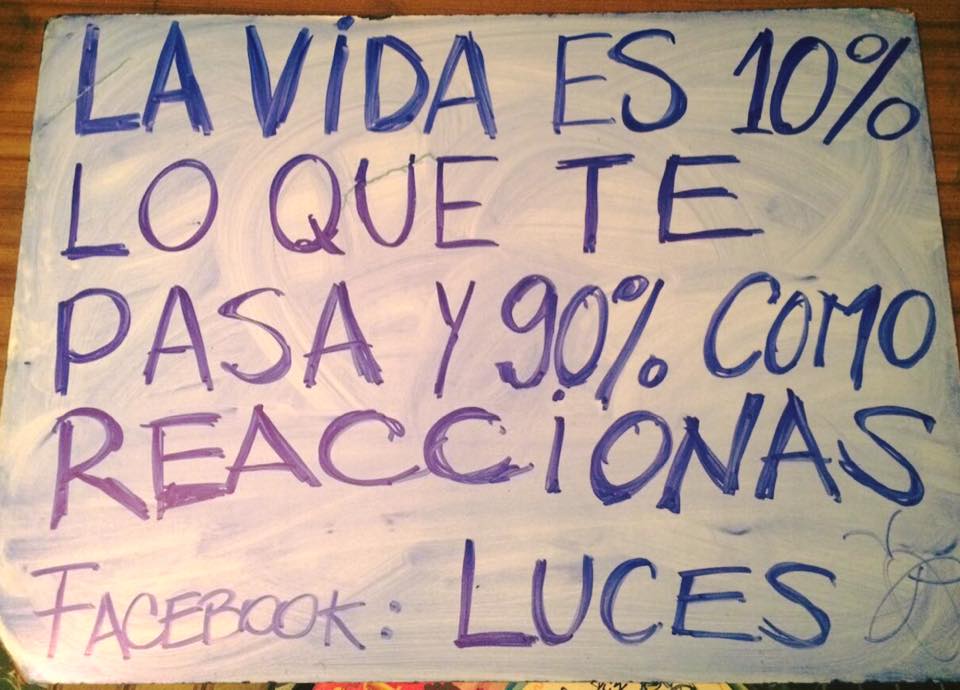 LA ViDA ES 10%
LO QUE TE
PASA Y 90% COMO
REACCiONAS
FACEBOOK: LUCES